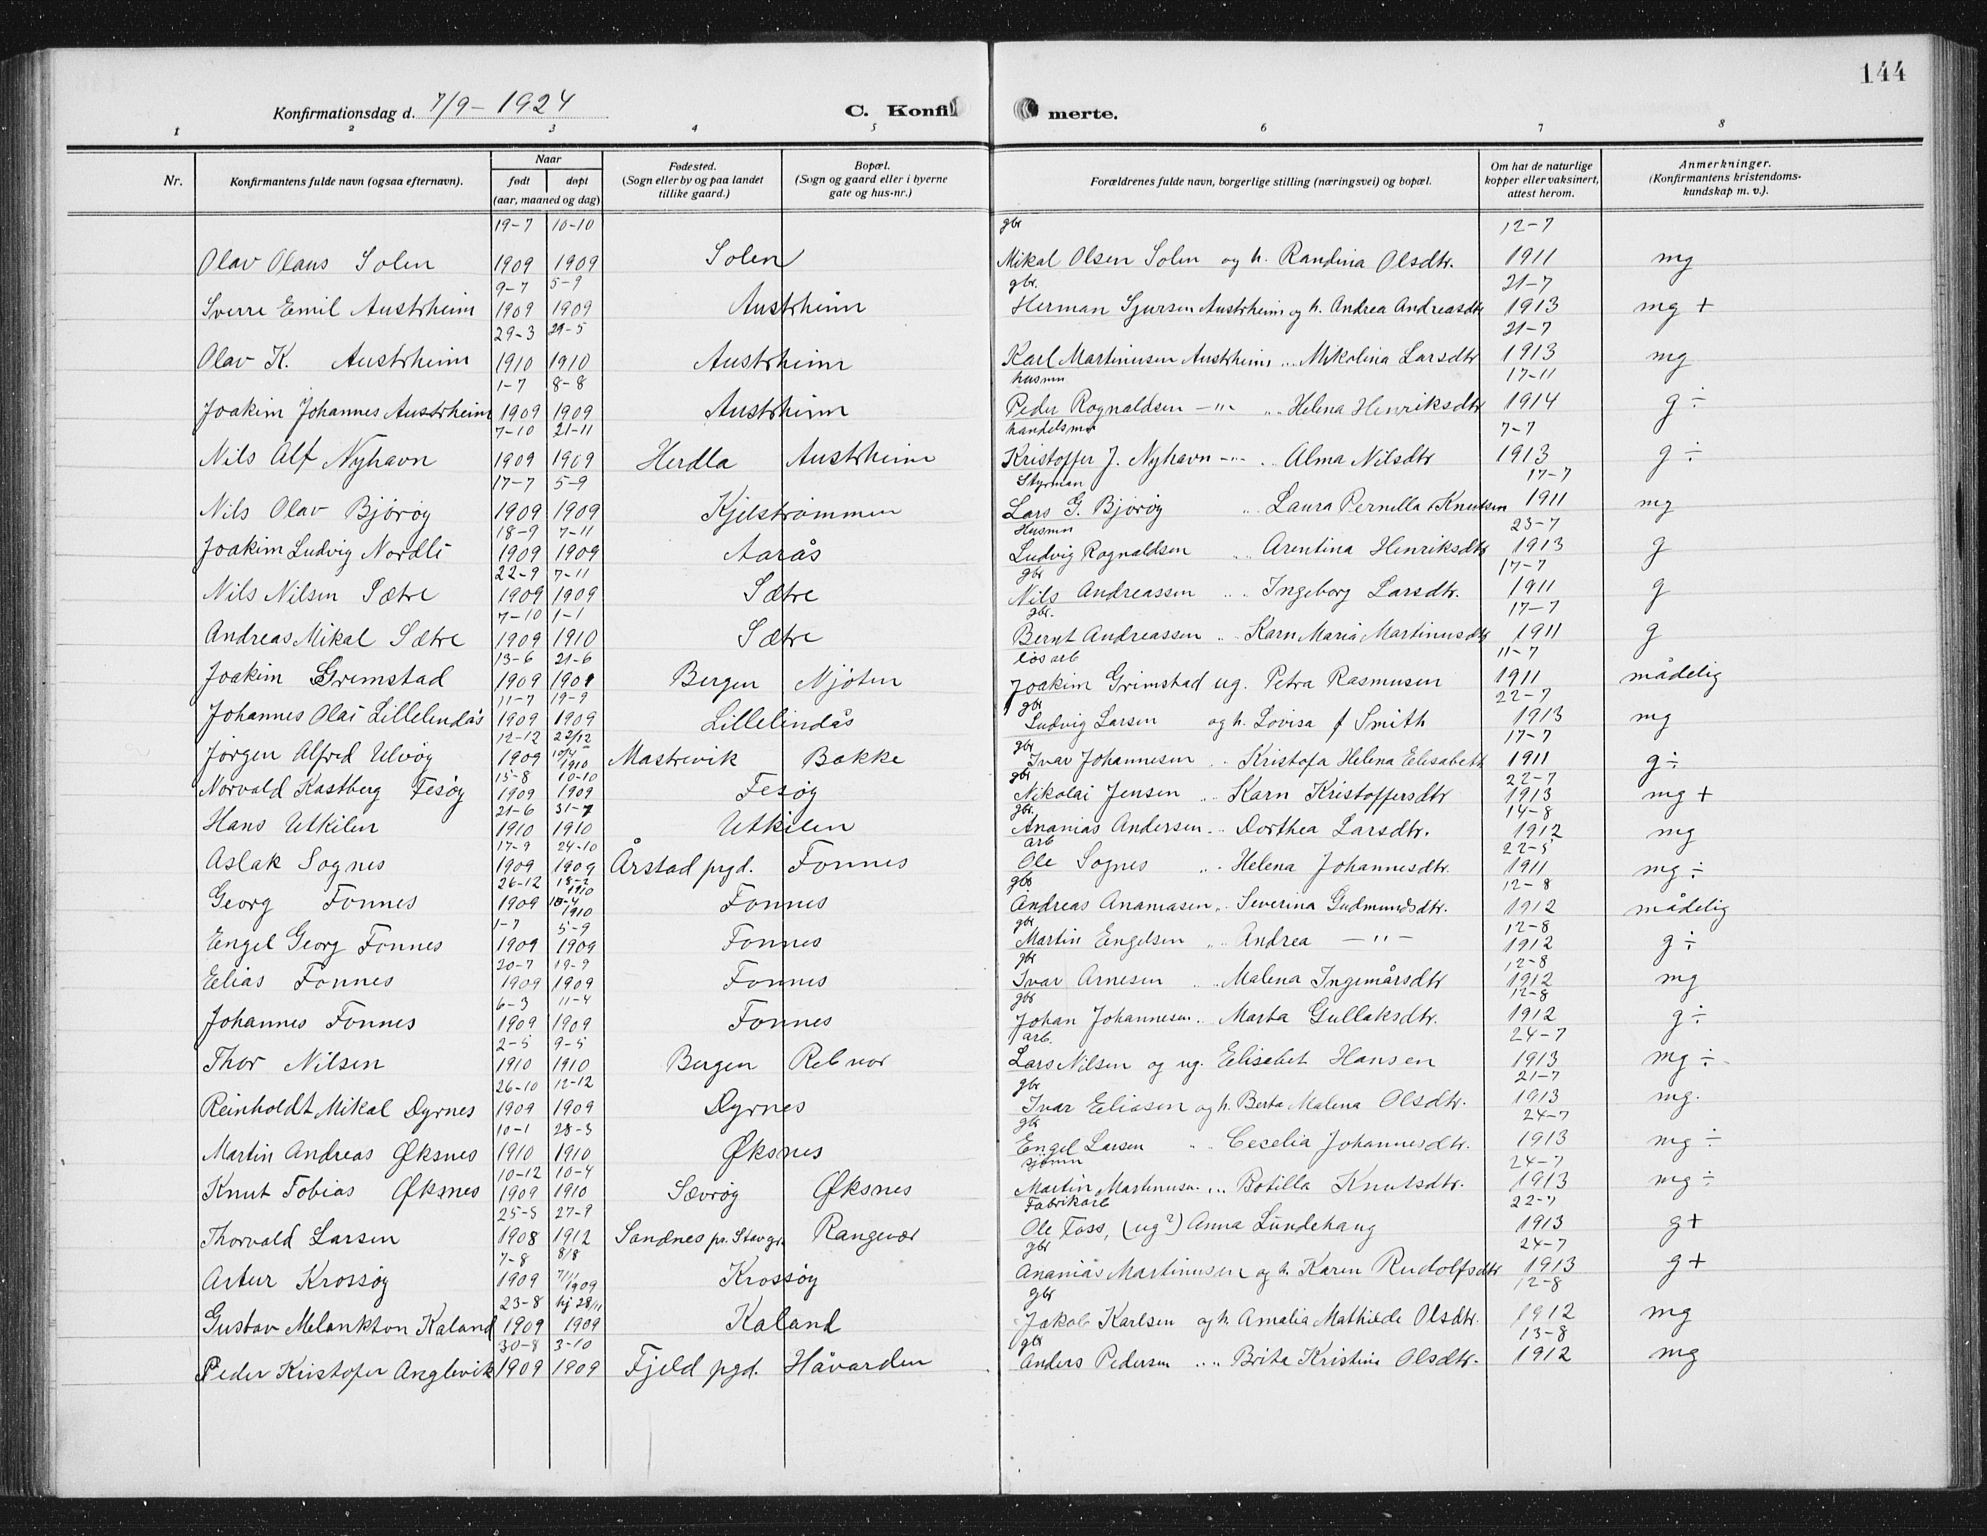 144
Konfirmationsdag d. 7/9 - 1924
C. Konfir merte.
1 2 3 4 5 6 7 8
Nr. Konfirmantens fulde navn (ogsaa efternavn). Naar født døpt (aar, maaned og dag) Fødested. (Sogn eller by og paa landet tillike gaard.) Bopæl. (Sogn og gaard eller i byerne gate og hus-nr.) Forældrenes fulde navn, borgerlige stilling (næringsvei) og bopæl. Om hat de naturlige kopper eller vaksinert, attest herom. Anmerkninger. (Konfirmantens kristendoms-kundskap m. v.).
19-7 10-10 gbr 12-7
Olav Olaus Solen 1909 1909 Solen Mikal Olsen Solen og h. Randina Olsdtr. 1911 mg
9-7 5-9 gbr. 21-7
Sverre Emil Austrheim 1909 1909 Austrheim Herman Sjursen Austrheim og h. Andrea Andreasdtr 1913 mg +
29-3 29-5 21-7
Olav K. Austrheim 1910 1910 Austrheim Karl Martinusen Austrheim „ „ Mikolina Larsdtr 1913 mg
1-7 8-8 husmn 17-11
Joakim Johannes Austrheim 1909 1909 Austrheim Peder Rognaldsen - " - „ Helena Henriksdtr 1914 g ÷
7-10 21-11 handelsm 7-7
Nils Alf Nyhavn 1909 1909 Herdla Austrheim Kristoffer J. Nyhavn - " - „ Alma Nilsdtr 1913 g ÷
17-7 5-9 Styrman 17-7
Nils Olav Bjørøy 1909 1909 Kjelstrømmen Lars G. Bjørøy „ Laura Pernilla Knutsen 1911 mg
18-9 7-11 Husmn 23-7
Joakim Ludvig Nordli 1909 1909 Aarås Ludvig Rognaldsen „ Arentina Henriksdtr 1913 g
22-9 7-11 gbr 17-7
Nils Nilsen Sætre 1909 1909 Sætre Nils Andreassen „ Ingeborg Larsdtr. 1911 g
7-10 1-1 gbr. 17-7
Andreas Mikal Sætre 1909 1910 Sætre Bernt Andreassen „ Karn Maria Martinusdtr 1911 g
13-6 21-6 løsarb 11-7
Joakim Grimstad 1909 1909 Bergen Njøten Joakim Grimstad ug. Petra Rasmusen 1911 mådelig
11-7 19-9 gbr 22-7
Johannes Olai Lillelindås 1909 1909 Lillelindås Ludvig Larsen og h. Lovisa f Smith 1913 mg
12-12 22/12 gbr 17-7
Jørgen Alfred Ulvøy 1909 10/4 1910 Mastrevik Bakke Ivar Johannesen „ Kristofa Helena Elisabeth 1911 g ÷
15-8 10-10 gbr 22-7
Norvald Kastberg Fesøy 1909 1909 Fesøy Nikolai Jensen „ Karn Kristoffersdtr 1913 mg +
21-6 31-7 gbr. 14-8
Hans Utkilen 1910 1910 Utkilen Ananias Andersen „ Dorthea Larsdtr. 1912 mg
17-9 24-10 arb 22-5
Aslak Sognes 1909 1909 Årstad pgd. Fonnes Ole Sognes „ Helena Johannesdtr. 1911 mg ÷
26-12 1910 gbr 12-8
Georg Fonnes 1909 10-4 1910 Fonnes Andreas Ananiasen „ Severina Gudmundsdtr. 1912 mådelig
1-7 5-9 gbr 12-8
Engel Georg Fonnes 1909 1909 Fonnes Martin Engelsen „ Andrea - " - 1912 g ÷
20-7 19-9 gbr 12-8
Elias Fonnes 1909 1909 Fonnes Ivar Arnesen „ Malena Ingemårsdtr 1912 mg
6-3 11-4 gbr 12-8
Johannes Fonnes 1909 1909 Fonnes Johan Johannesen „ Marta Gullaksdtr. 1912 g ÷
2-5 9-5 arb. 24-7
Thor Nilsen 1910 1910 Bergen Rebnor Lars Nilsen og ug. Elisabet Hansen 1913 mg ÷
26-10 12-12 gbr 21-7
Reinholdt Mikal Dyrnes 1909 1909 Dyrnes Ivar Eliasen og h. Berta Malena Olsdtr. 1913 mg.
10-1 28-3 gbr 24-7
Martin Andreas Øksnes 1910 1910 Øksnes Engel Larsen „ Ceselia Johannesdtr. 1913 mg ÷
10-12 10-4 sjømn 24-7
Knut Tobias Øksnes 1909 1910 Sævrøy Øksnes Martin Martinusen „ Botilla Knutsdtr. 1913 mg ÷
25-5 27-9 Fabrikarb 22-7
Thorvald Larsen 1908 1912 Sandnes pr. Stavgr. Rangevær Ole Foss, (ug?) Anna Lundehaug 1913 g +
7-8 8/8 gbr 24-7
Artur Krossøy 1909 7/11 1909 Krossøy Ananias Martinusen og h. Karen Rudolfsdtr 1913 g +
23-8 hj 28/11 gbr 12-8
Gustav Melankton Kaland 1909 1909 Kaland Jakob Karlsen og h. Amalia Mathilde Olsdtr. 1912 mg
30-8 3-10 gbr 13-8
Peder Kristofer Anglevik 1909 1909 Fjeld pgd. Håvarden Anders Pedersen „ „ Brita Kristina Olsdtr. 1912 mg